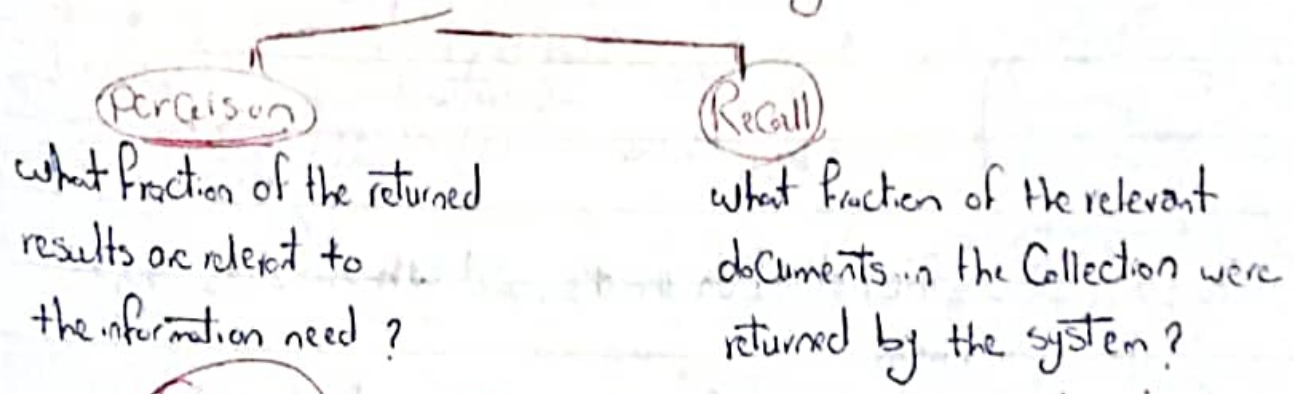 Perceison
Recall
what fraction of the returned
results are relevant to
the information need ?
what fraction of the relevant
documents in the Collection were
returned by the system ?